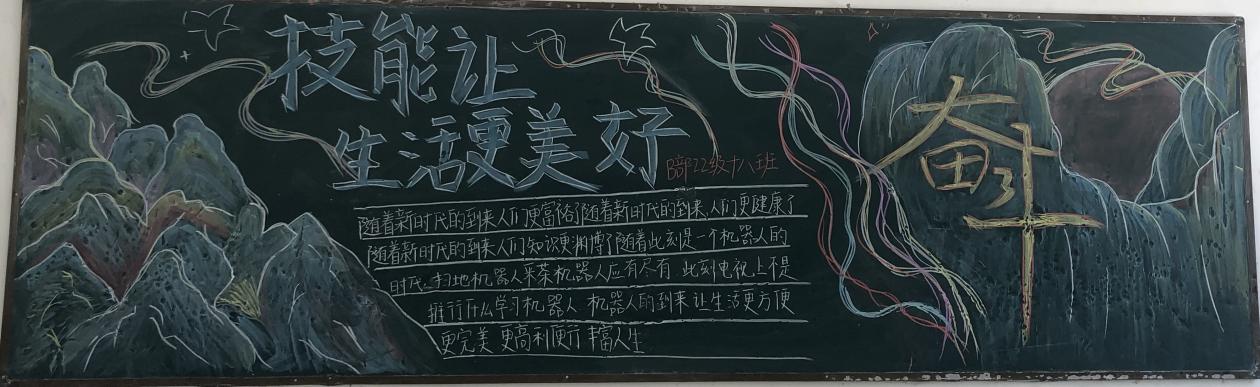 技能让
生活更美好
B部22级十八班
随着新时代的到来人们更富裕了随着新时代的到来,人们更健康了
随着新时代的到来人们知识更渊博了随着此刻是一个机器人的
时代,扫地机器人采茶机器人应有尽有.此刻电视上不是
推行什么学习机器人 机器人的到来让生活更方便
更完美 更高利便行 丰富人生
奋斗